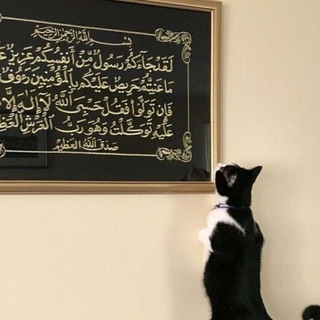 بِسْمِ اللَّهِ الرَّحْمَنِ الرَّحِيمِ
لَقَدْ جَاءَكُمْ رَسُولٌ مِّنْ أَنفُسِكُمْ عَزِيزٌ عَلَيْهِ
مَا عَنِتُّمْ حَرِيصٌ عَلَيْكُم بِالْمُؤْمِنِينَ رَءُوفٌ
فَإِن تَوَلَّوْا فَقُلْ حَسْبِيَ اللَّهُ لَا إِلَهَ إِلَّا
عَلَيْهِ تَوَكَّلْتُ وَهُوَ رَبُّ الْعَرْشِ الْعَظِيمِ
صَدَقَ اللَّهُ الْعَظِيمُ